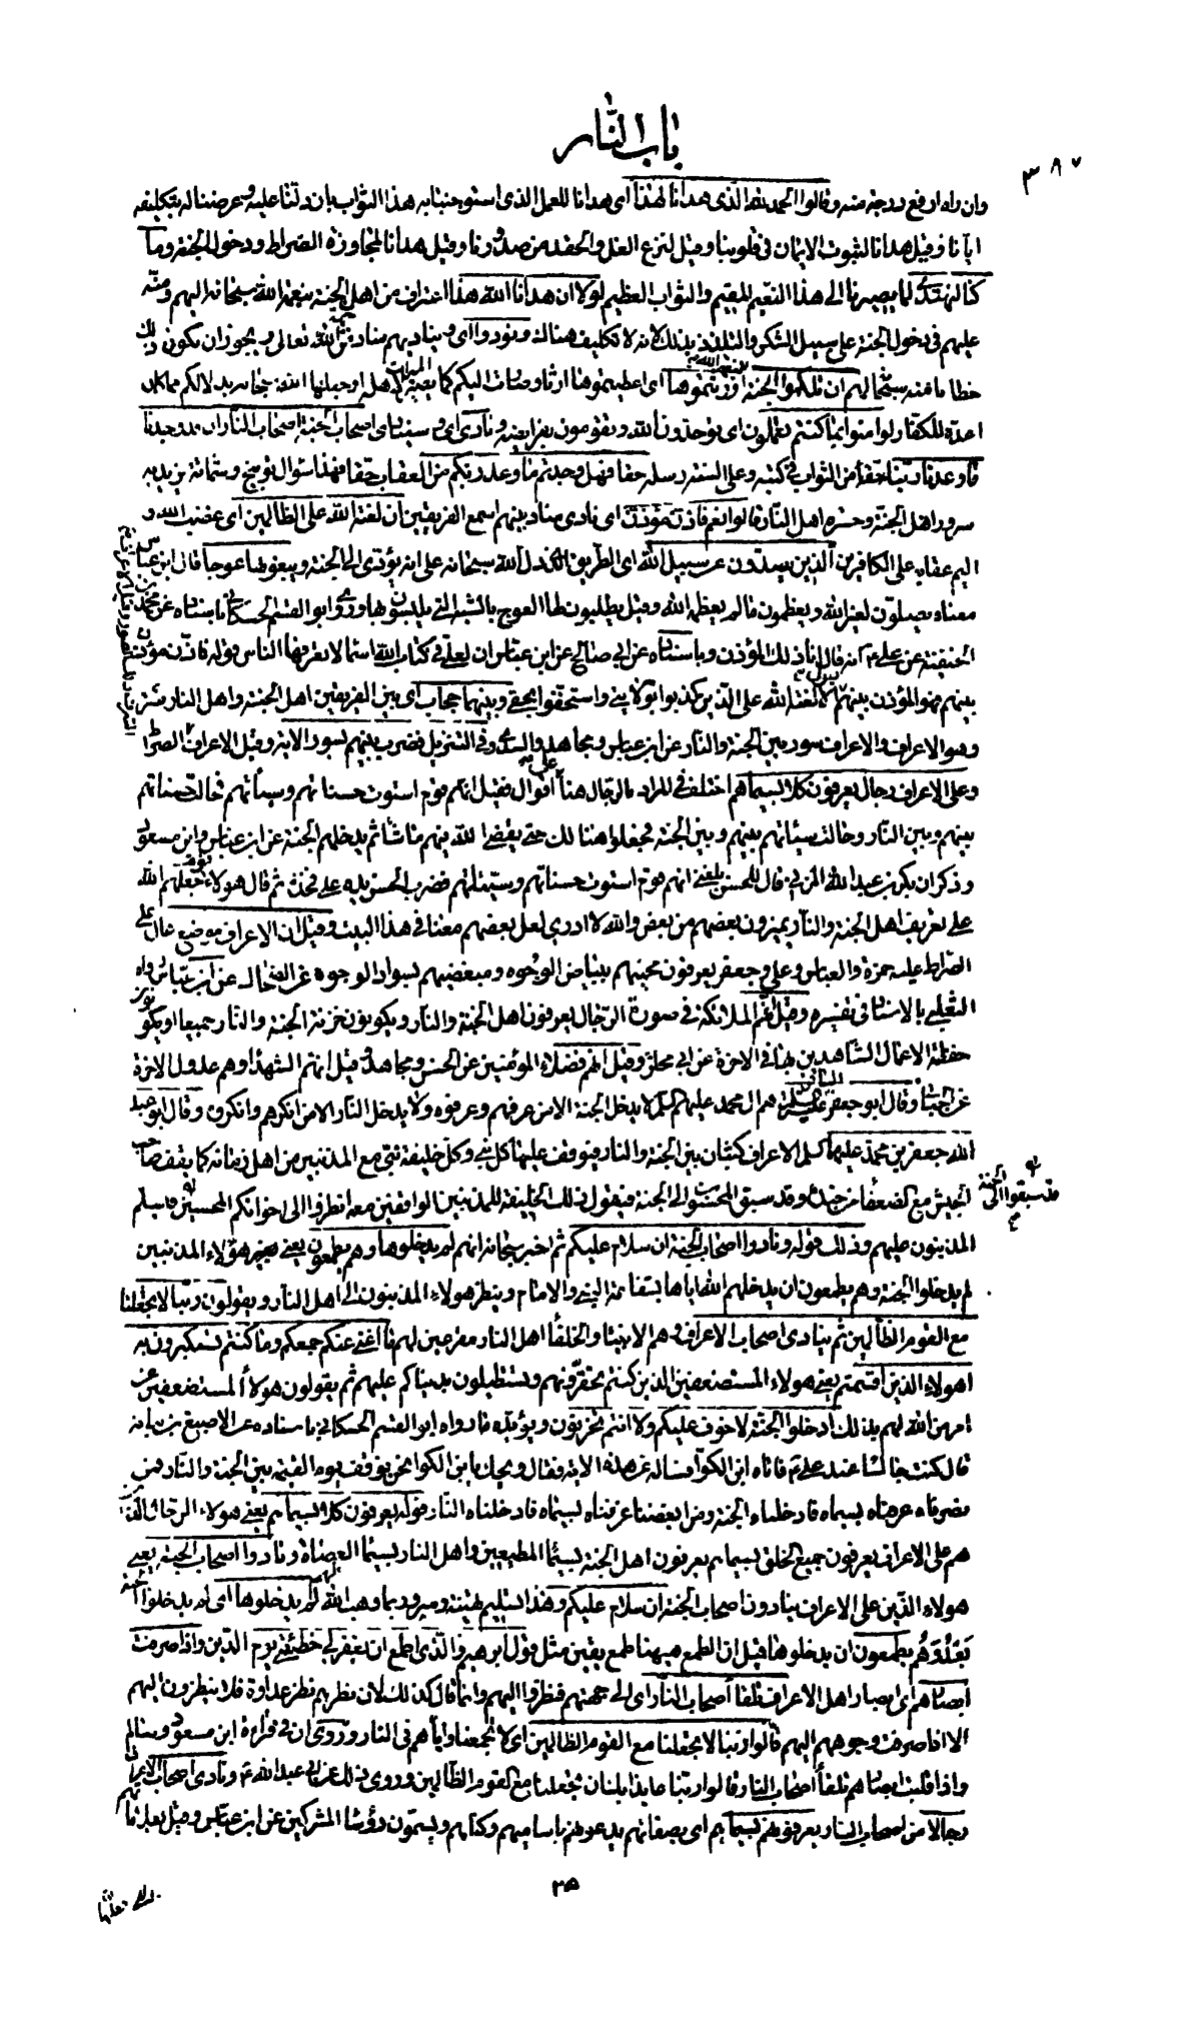 باب النار
٣٨٧
وان راه ارفع درجة منه وقالوا الحمد لله الذى هدانا لهذا اى هدانا للعمل الذى استوجبنا به هذا الثواب بان دلنا عليه وعرضنا له بتكليفه
ايانا وقيل هدانا لثبوت الايمان فى قلوبنا وقيل لنزع الغل والحقد من صدورنا وقيل هدانا لمجاوزة الصراط ودخول الجنة وما
كنا لنهتدى لما يصيرنا الى هذا النعيم المقيم والثواب العظيم لولا ان هدانا الله هذا اعتراف من اهل الجنة بنعمة الله سبحانه اليهم ومنّه
عليهم فى دخول الجنة على سبيل الشكر والتلذذ بذلك لانه لا تكليف هناك ونودوا اى ويناديهم مناد من جهة الله تعالى ويجوز ان يكون ذلك
خطابا منه سبحانه لهم ان تلكم الجنة اورثتموها اى اعطيتموها ارثا وصارت اليكم كما يصير الميراث لاهله او جعلها الله سبحانه بدلا لكم مما كان
اعده للكفار لو امنوا بما كنتم تعملون اى توحدون الله وتقومون بفرايضه ونادى اى وسينادى اصحاب الجنة اصحاب النار ان قد وجدنا
ما وعدنا ربنا حقا من الثواب فى كتبه وعلى السنة رسله حقا فهل وجدتم ما وعد ربكم من العقاب حقا فهذا سؤال توبيخ وشماتة يزيد به
سرور اهل الجنة وحسرة اهل النار قالوا نعم فاذن مؤذن اى نادى مناد بينهم اسمع الفريقين ان لعنة الله على الظالمين اى غضب الله و
اليم عقابه على الكافرين الذين يصدون عن سبيل الله اى الطريق الذى دل الله سبحانه على انه يؤدى الى الجنة ويبغونها عوجا قال ابن عباس
معناه يصلون لغير الله ويعظمون ما لم يعظمه الله وقيل يطلبون لها العوج بالشبه التى يلبسون بها وروى ابو القسم الحسكانى باسناده عن محمد بن
الحنفية عن على ع انه قال انا ذلك المؤذن وباسناده عن ابى صالح عن ابن عباس ان لعلى فى كتاب الله اسماء لا يعرفها الناس قوله فاذن مؤذن
بينهم فهو المؤذن بينهم يقول الا لعنة الله على الذين كذبوا بولايتى واستخفوا بحقى وبينهما حجاب اى بين الفريقين اهل الجنة واهل النار ستر
وهو الاعراف والاعراف سور بين الجنة والنار عن ابن عباس ومجاهد والسدى وفى التنزيل فضرب بينهم بسور الاية وقيل الاعراف الصراط
وعلى الاعراف رجال يعرفون كلا بسيماهم اختلف فى المراد بالرجال هنا على اقوال فقيل انهم قوم استوت حسناتهم وسيئاتهم فحالت حسناتهم
بينهم وبين النار وحالت سيئاتهم بينهم وبين الجنة فجعلوا هنالك حتى يقضى الله فيهم ما شاء ثم يدخلهم الجنة عن ابن عباس وابن مسعود
وذكر ان بكر بن عبد الله المزنى قال للحسن بلغنى انهم قوم استوت حسناتهم وسيئاتهم فضرب الحسن يده على فخذه ثم قال هؤلاء قوم جعلهم الله
على تعريف اهل الجنة والنار يميزون بعضهم من بعض والله لا ادرى لعل بعضهم معنا فى هذا البيت وقيل ان الاعراف موضع عال على
الصراط عليه حمزة والعباس وعلى وجعفر يعرفون محبيهم ببياض الوجوه ومبغضيهم بسواد الوجوه عن الضحاك عن ابن عباس رواه
الثعلبى بالاسناد فى تفسيره وقيل انهم الملائكة فى صورة الرجال يعرفون اهل الجنة والنار ويكونون خزنة الجنة والنار جميعا او يكونون
حفظة الاعمال الشاهدين بها فى الاخرة عن ابى مجلز وقيل انهم فضلاء المؤمنين عن الحسن ومجاهد وقيل انهم الشهداء وهم عدول الاخرة
عن الجبائى وقال ابو جعفر الباقر عليه السلام هم ال محمد عليهم السلام لا يدخل الجنة الا من عرفهم وعرفوه ولا يدخل النار الا من انكرهم وانكروه وقال ابو عبد
الله جعفر بن محمد عليهما السلم الاعراف كثبان بين الجنة والنار فيوقف عليها كل نبى وكل خليفة نبى مع المذنبين من اهل زمانه كما يقف صاحب
الجيش مع الضعفاء من جنده وقد سبق المحسنون الى الجنة فيقول ذلك الخليفة للمذنبين الواقفين معه انظروا الى اخوانكم المحسنين فيسلم
قد سبقوا الى الجنة
المذنبون عليهم وذلك قوله ونادوا اصحاب الجنة ان سلام عليكم ثم اخبر سبحانه انهم لم يدخلوها وهم يطمعون يعنى هؤلاء المذنبين
لم يدخلوا الجنة وهم يطمعون ان يدخلهم الله اياها بشفاعة النبى والامام وينظر هؤلاء المذنبون الى اهل النار ويقولون ربنا لا تجعلنا
مع القوم الظالمين ثم ينادى اصحاب الاعراف وهم الانبياء والخلفاء اهل النار مقرعين لهم ما اغنى عنكم جمعكم وما كنتم تستكبرون به
اهؤلاء الذين اقسمتم يعنى هؤلاء المستضعفين الذين كنتم تحقرونهم وتستطيلون بدنياكم عليهم ثم يقولون هؤلاء المستضعفين عن
امر من الله لهم بذلك ادخلوا الجنة لا خوف عليكم ولا انتم تحزنون ويؤيده ما رواه ابو القسم الحسكانى باسناده عن الاصبغ بن نباته
قال كنت جالسا عند على ع فاتاه ابن الكوا فساله عن هذه الاية فقال ويحك يا بن الكوا نحن نوقف يوم القيمة بين الجنة والنار فمن
نصرنا عرفناه بسيماه فادخلناه الجنة ومن ابغضنا عرفناه بسيماه فادخلناه النار قوله يعرفون كلا بسيماهم يعنى هؤلاء الرجال الذين
هم على الاعراف يعرفون جميع الخلق بسيماهم يعرفون اهل الجنة بسيماء المطيعين واهل النار بسيماء العصاة ونادوا اصحاب الجنة يعنى
هؤلاء الذين على الاعراف ينادون اصحاب الجنة ان سلام عليكم وهذا تسليم تهنئة وسرور بما وهب الله لهم لم يدخلوها اى لم يدخلوا الجنة
بعد وهم يطمعون ان يدخلوها قيل ان الطمع هيهنا طمع يقين مثل قول ابرهيم والذى اطمع ان يغفر لى خطيئتى يوم الدين واذا صرفت
ابصارهم اى ابصار اهل الاعراف تلقاء اصحاب النار اى الى جهتهم فنظروا اليهم وانما قال كذلك لان نظرهم نظر عداوة فلا ينظرون اليهم
الا اذا صرفت وجوههم اليهم قالوا ربنا لا تجعلنا مع القوم الظالمين اى لا تجمعنا واياهم فى النار وروى ان فى قراءة ابن مسعود وسالم
واذا قلبت ابصارهم تلقاء اصحاب النار قالوا ربنا عائذا بك ان تجعلنا مع القوم الظالمين وروى ذلك عن ابى عبد الله ع ونادى اصحاب الاعراف
رجالا من اصحاب النار يعرفونهم بسيماهم اى بصفاتهم يدعونهم باساميهم وكناهم ويسمون رؤساء المشركين عن ابن عباس وقيل بعلاماتهم
٣٥